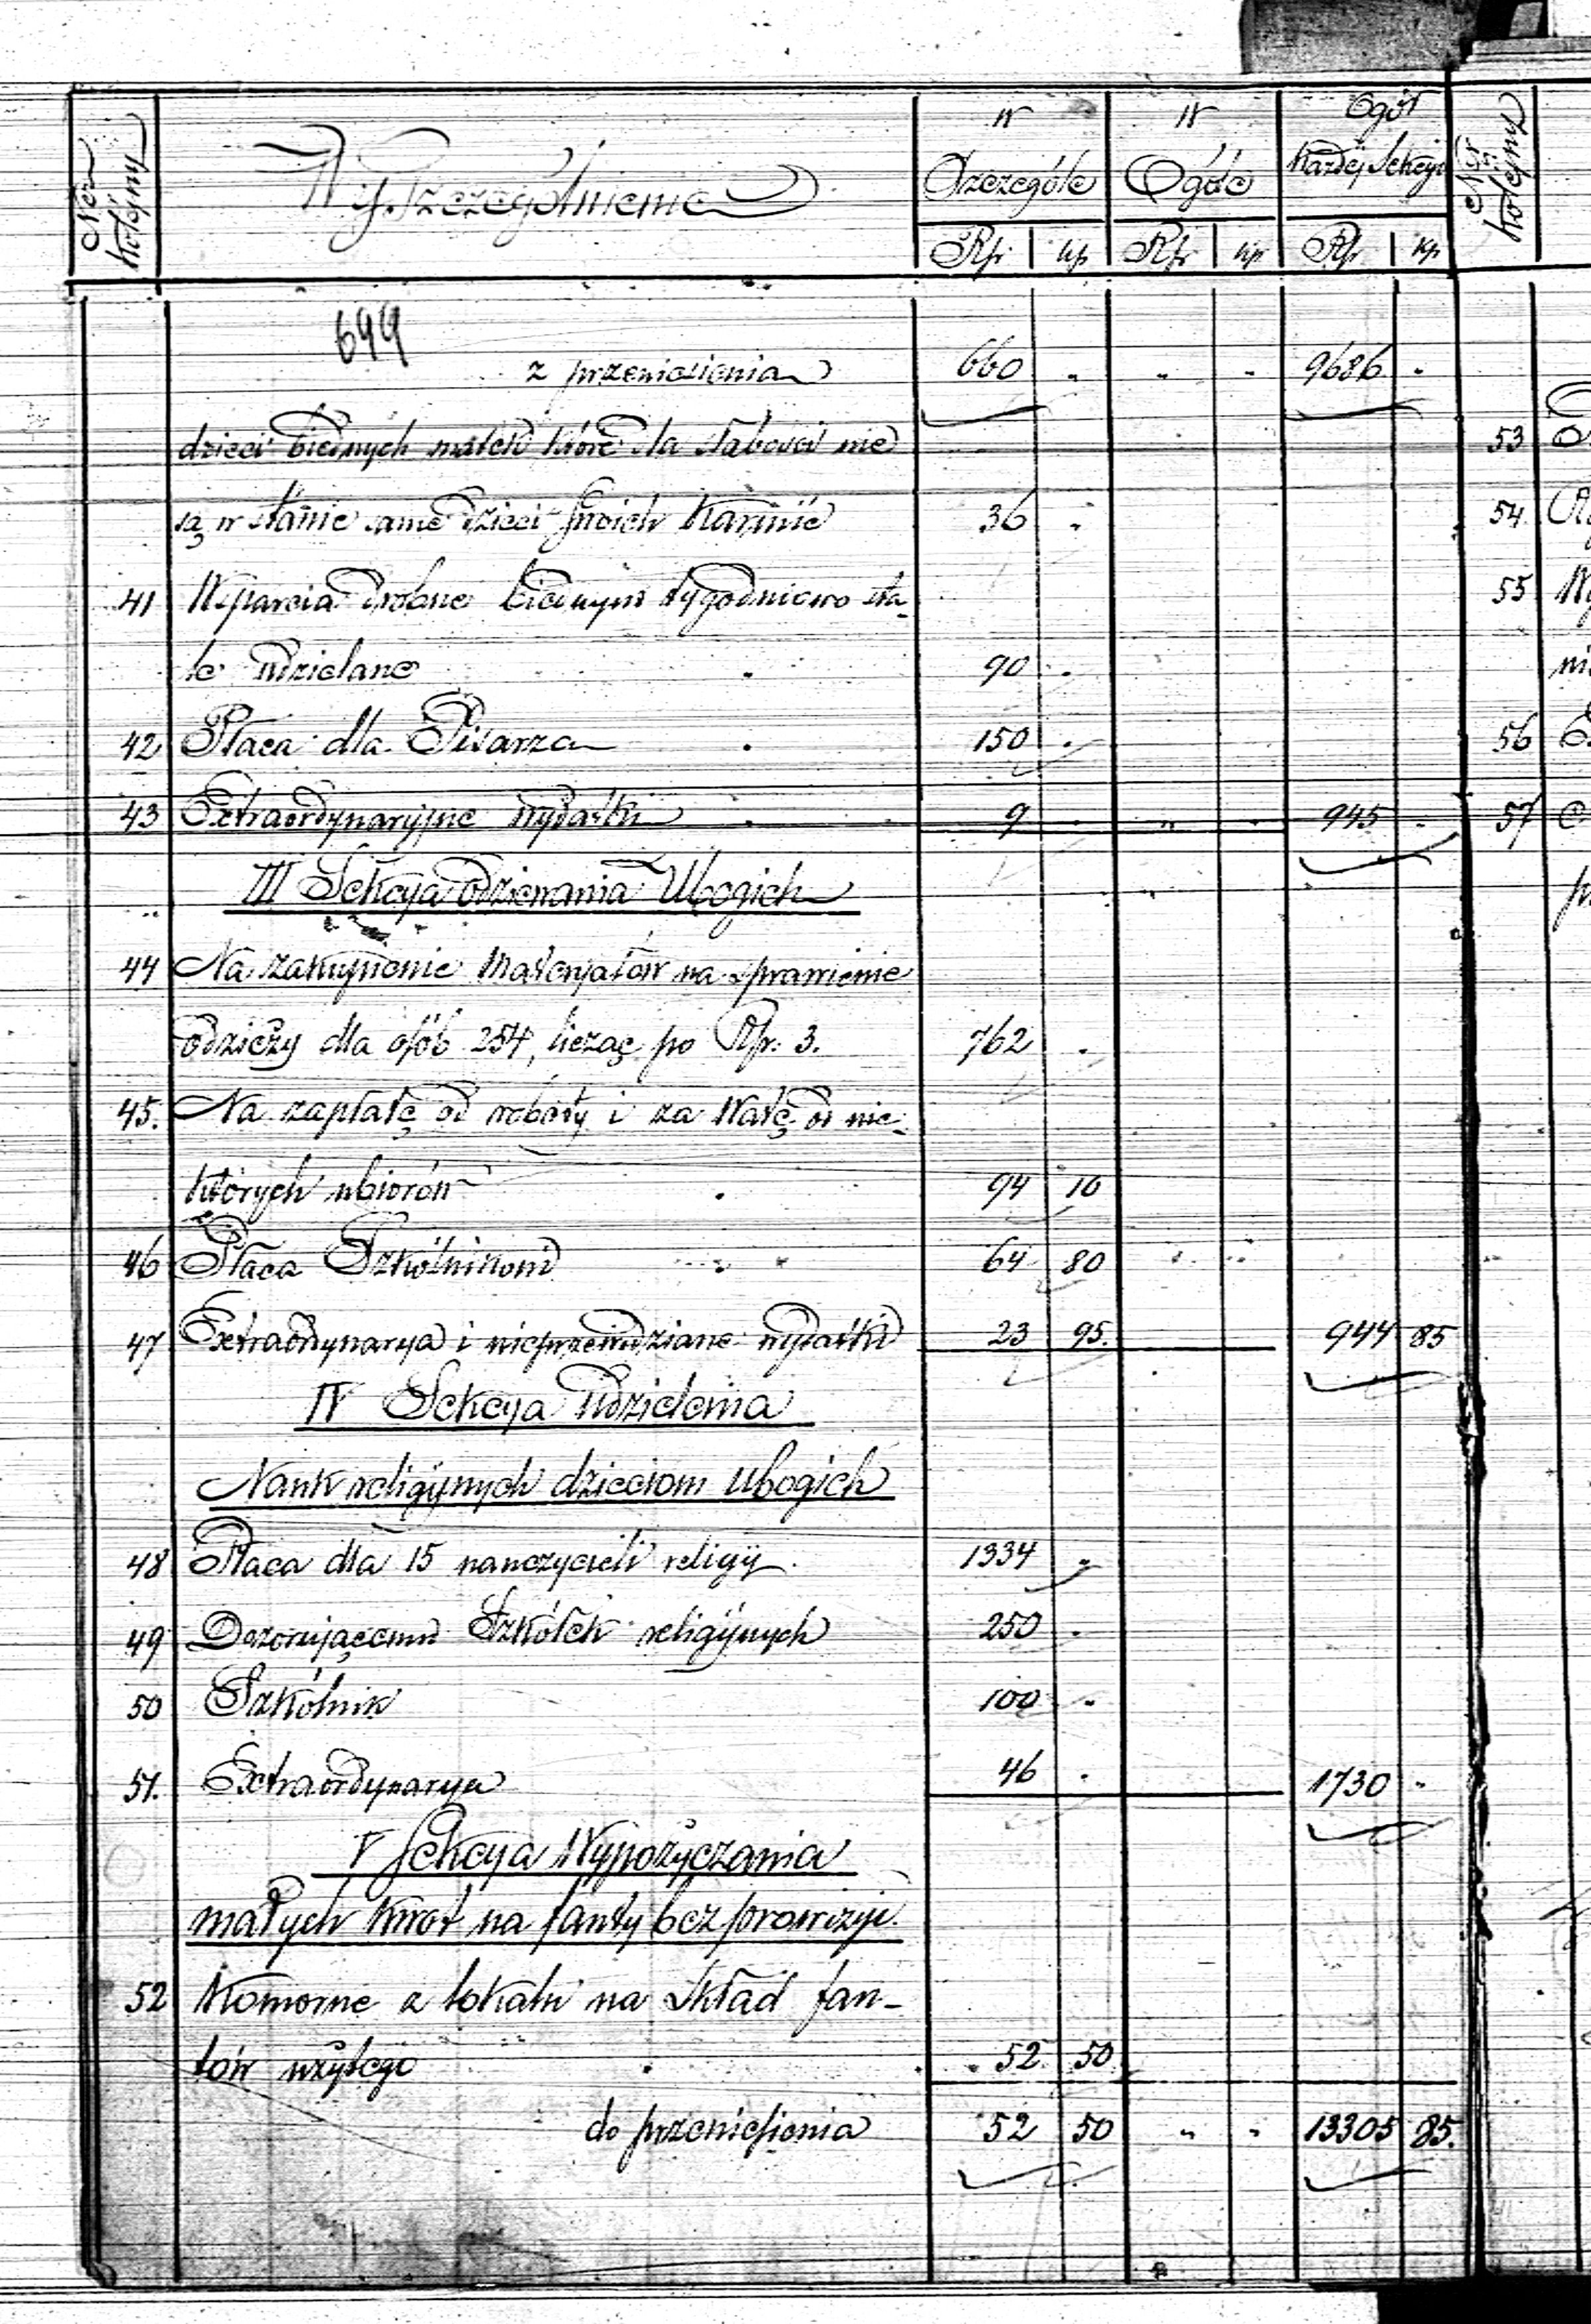 Ner kolejny Wyszczególnienie w Szczególe w Ogóle Ogół Każdej Sekcyi Ner kolejny
Rsr kp Rsr kp Rsr kp
699
z przeniesienia 660 " " " 9686 "
dzieci biednych matek które dla słabości nie 53
są w stanie same dzieci swoich karmić 36 " 54
41 Wsparcia drobne biednym tygodniowo sta- 55
le udzielane 90 "
42 Płaca dla Pisarza 150 " 56
43 Extraordynaryjne wydatki 9 " " " 945 " 57
III Sekcya odziewania Ubogich
44 Na zakupienie Materyałów na sprawienie
odzieży dla osób 254, licząc po Rsr. 3. 762 "
45. Na zapłatę od roboty i za Watę do nie-
których ubiorów 94 10
46 Płaca Szkólnikowi 64 80
47 Extraordynarya i nieprzewidziane wydatki 23 95. 944 85
IV Sekcya Udzielenia
Nauk religijnych dzieciom Ubogich
48 Płaca dla 15 nauczycieli religij 1334 "
49 Dozorującemu Szkółek religijnych 250 "
50 Szkólnik 100 "
51. Extraordynarya 46 " 1730 "
V Sekcya Wypożyczania
małych kwot na fanty bez prowizyi.
52 Komorne z lokalu na skład fan-
tów użytego 52 50
do przeniesienia 52 50 " " 13305 85.